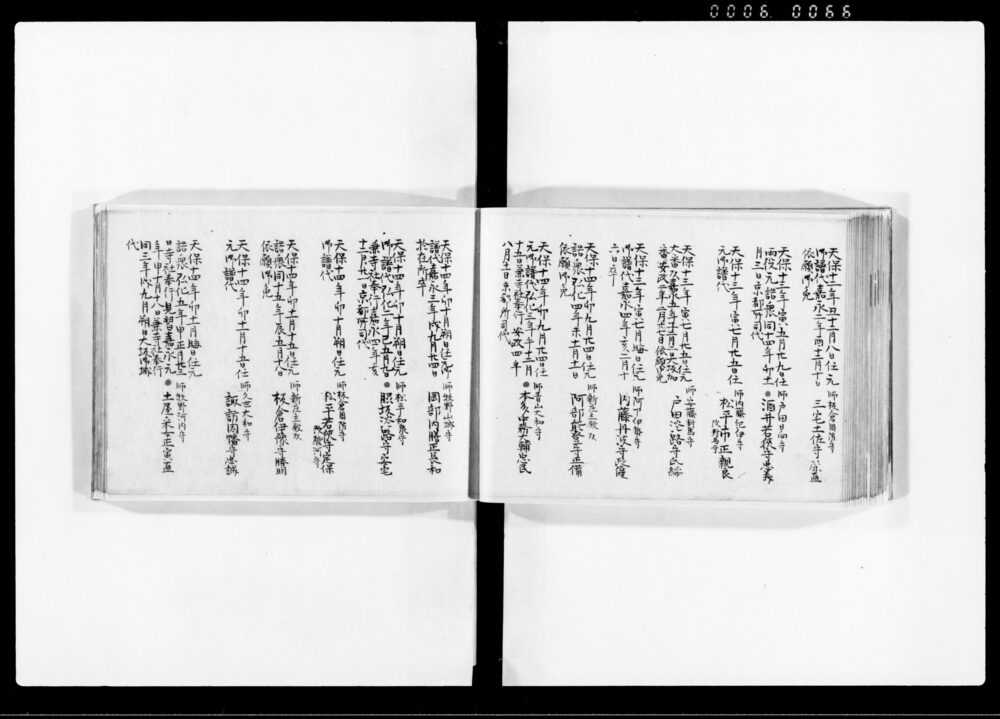 0006 0066
天保十二年丑十二月八日任元
御譜代嘉永二年酉十一月十日
依願御免
師板倉周防守
三宅土佐守康直
天保十三年寅五月廿九日任
両役元詰衆同十四年卯十一
月三日京都所司代
師戸田日向守
酒井若狭守忠義
天保十三年寅七月廿五日任
元御譜代
師内藤紀伊守
松平市正親良
改野守
天保十三年寅七月廿五日任元
大番頭嘉永五年子十月三日大坂加
番安政二年二月廿七日依願御免
師安藤対馬守
戸田淡路守氏綏
天保十三年寅七月晦日任元
御譜代嘉永四年亥二月十
六日卒
師阿部伊勢守
内藤丹波守政優
天保十四年卯九月廿四日任元
詰衆弘化四年未十一月十一日
依願御免
師新庄主殿頭
阿部能登守正備
天保十四年卯九月廿四日任
元御譜代弘化三年午十二月
十五日兼寺社奉行安政四年
八月十一日京都所司代
師青山大和守
本多中務大輔忠民
天保十四年卯十月朔日任御
譜代嘉永三年戌九月廿四日
於在所卒
師牧野山城守
岡部内膳正長和
天保十四年卯十月朔日任元
御譜代弘化二年巳五月九日
兼寺社奉行嘉永四年亥
十二月廿一日京都所司代
師松平和泉守
脇坂淡路守安宅
天保十四年卯十月朔日任元
御譜代
師板倉周防守
松平若狭守定保
改駿河守
天保十四年卯十一月十五日任元
詰衆同十五年辰五月八日
依願御免
師新庄主殿頭
板倉伊豫守勝明
天保十四年卯十二月十五日任
元御譜代
師久世大和守
諏訪因幡守忠誠
天保十四年卯十二月晦日任元
詰衆弘化五年申正月廿三
日寺社奉行見習嘉永元
年申十月十八日兼寺社奉行
同三年戌九月朔日大坂御城
代
師牧野河内守
土屋采女正寅直